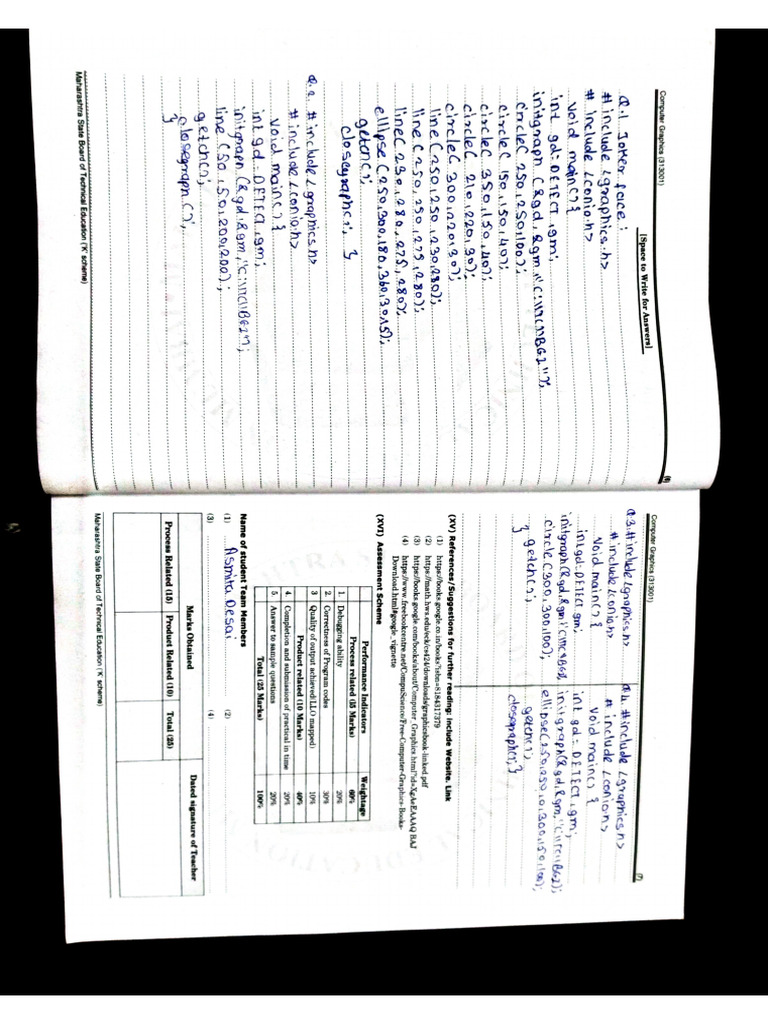 Computer Graphics (313001)
(6)
[Space to Write for Answers]
Q.1 Joker face :
# include <graphics.h>
# include <conio.h>
void main() {
int gd=DETECT, gm;
initgraph (&gd, &gm, "C:\\TC\\BGI");
circle( 250, 250, 100);
circle( 150, 150, 40);
circle( 350, 150, 40);
circle( 210, 220, 30);
circle( 300, 220, 30);
line( 250, 250, 230, 280);
line( 250, 250, 275, 280);
line( 230, 280, 275, 280);
ellipse( 250, 300, 180, 360, 30, 15);
getch();
closegraph(); }
Q.2. # include <graphics.h>
# include <conio.h>
void main() {
int gd=DETECT, gm;
initgraph (&gd, &gm, "C:\\TC\\BGI");
line (50, 50, 200, 200);
getch();
closegraph();
}
Maharashtra State Board of Technical Education ('K' scheme)
Computer Graphics (313001)
(7)
Q.3. #include <graphics.h>
#include <conio.h>
void main() {
int gd=DETECT, gm;
circle(300, 300, 100);
getch();
}
Q.4. #include <graphics.h>
# include <conio.h>
void main() {
int gd=DETECT, gm;
initgraph(&gd, &gm, "C:\\TC\\BGI);
ellipse(250, 250, 0, 300, 150, 100);
getch();
closegraph(); }
(XV) References/ Suggestions for further reading: include Website, Link
(1) https://books.google.co.in/books?isbn=8184317379
(2) https://math.hws.edu/eck/cs424/downloads/graphicsbook-linked.pdf
(3) https://books.google.com/books/about/Computer_Graphics.html?id=XgAeEAAAQ BAJ
(4) https://www.freebookcentre.net/CompuScience/Free-Computer-Graphics-Books-
Download.html#google_vignette
(XVI) Assessment Scheme
Performance Indicators Weightage
Process related (15 Marks) 60%
1. Debugging ability 20%
2. Correctness of Program codes 30%
3 Quality of output achieved(LLO mapped) 10%
Product related (10 Marks) 40%
4. Completion and submission of practical in time 20%
5. Answer to sample questions 20%
Total (25 Marks) 100%
Name of student Team Members
(1) Asmita Desai (2)
(3) (4)
Marks Obtained Dated signature of Teacher
Process Related (15) Product Related (10) Total (25)
Maharashtra State Board of Technical Education ('K' scheme)